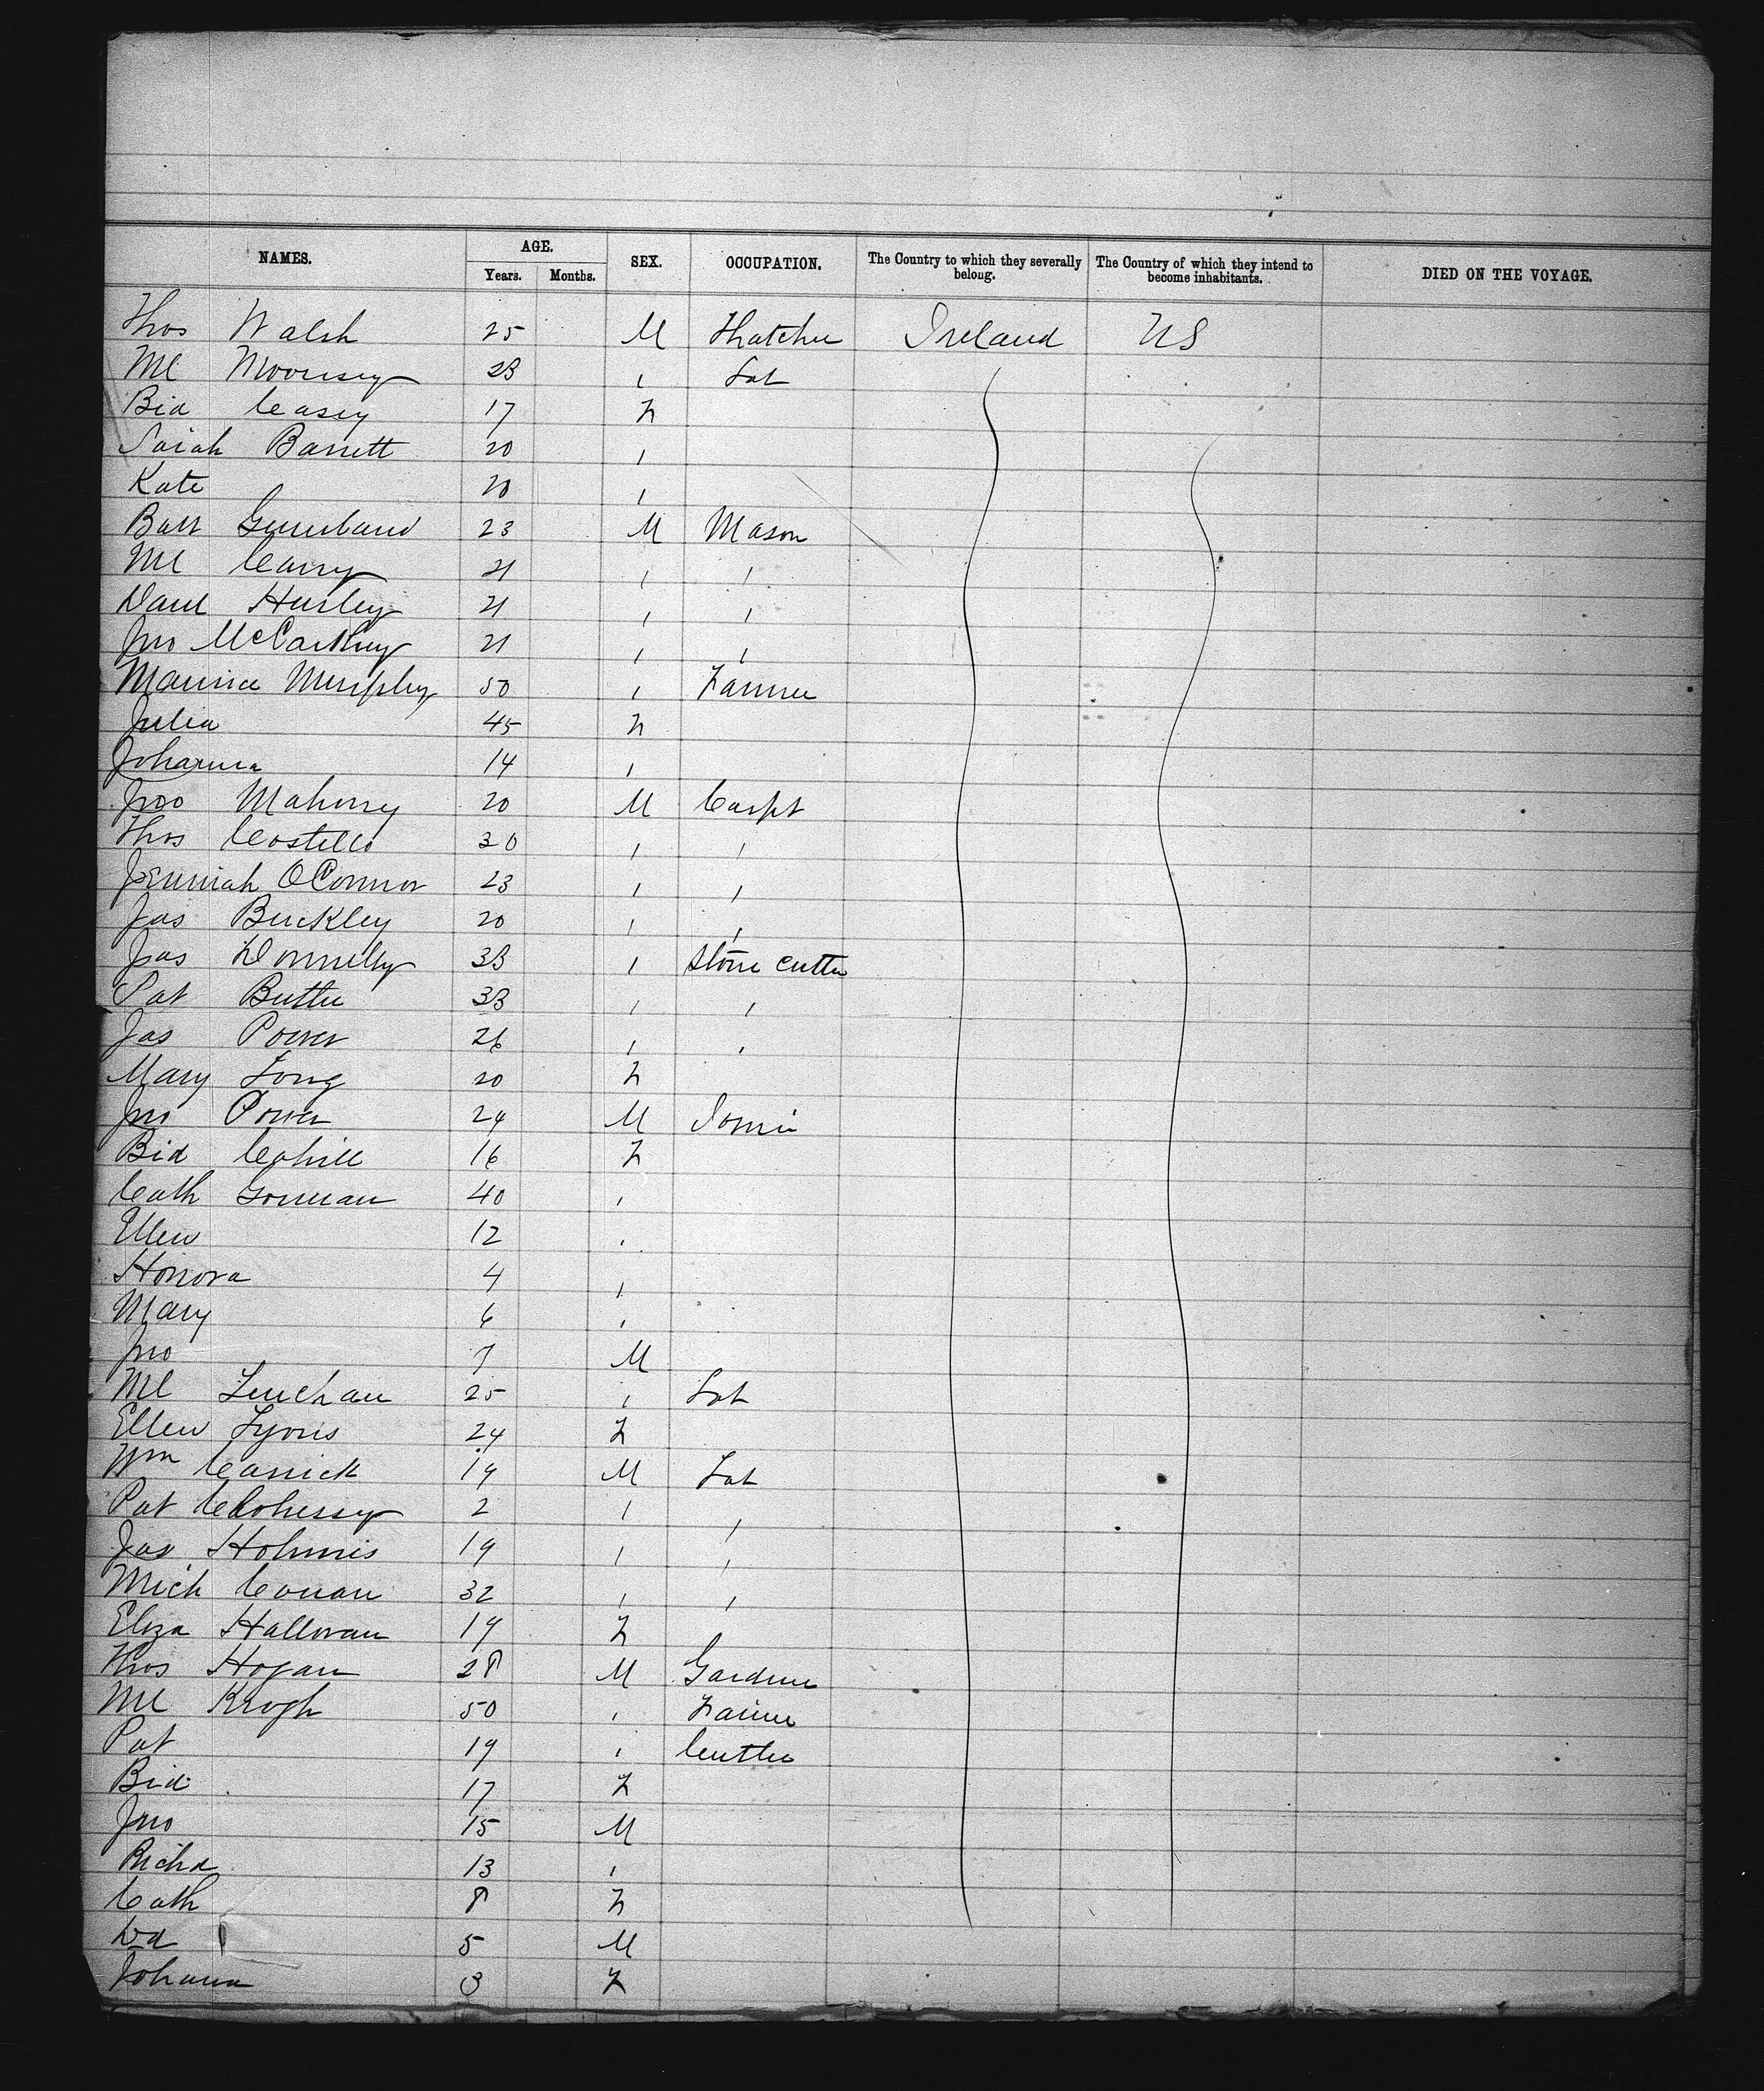 NAMES. AGE. SEX. OCCUPATION. The Country to which they severally belong. The Country of which they intend to become inhabitants. DIED ON THE VOYAGE.
Years. Months.
Thos Walsh 25 M Thatcher Ireland US
Ml 23 , Lab
Bid Casey 17 F
Sarah Barrett 20 ,
Kate 20 ,
Bart 23 M Mason
Ml 21 , ,
Danl Hurley 21 , ,
Jno McCarthy 21 , ,
Maurice Murphy 50 , Farmer
Julia 45 F
Johanna 14 ,
Jno Mahony 20 M Carpt
Thos Costello 30 , ,
Jeremiah OConnor 23 , ,
Jas Buckley 20 , ,
Jas Donnelly 33 , Stone Cutter
Pat Butler 33 , ,
Jas Power 26 , ,
Mary Long 20 F
Jno Power 24 M
Bid Cahill 16 F
Cath Gorman 40 ,
Ellen 12 ,
Honora 4 ,
Mary 6 ,
Jno 7 M
Ml Linehan 25 , Lab
Ellen Lyons 24 F
Wm Carrick 19 M Lab
Pat Clohessy 2 , ,
Jas Holmes 19 , ,
Mich Conan 32 , ,
Eliza Halloran 19 F
Thos Hogan 28 M Gardner
Ml Keogh 50 , Farmer
Pat 19 , Cutler
Bid 17 F
Jno 15 M
Richd 13 ,
Cath 8 F
Ed 5 M
Johana 3 F